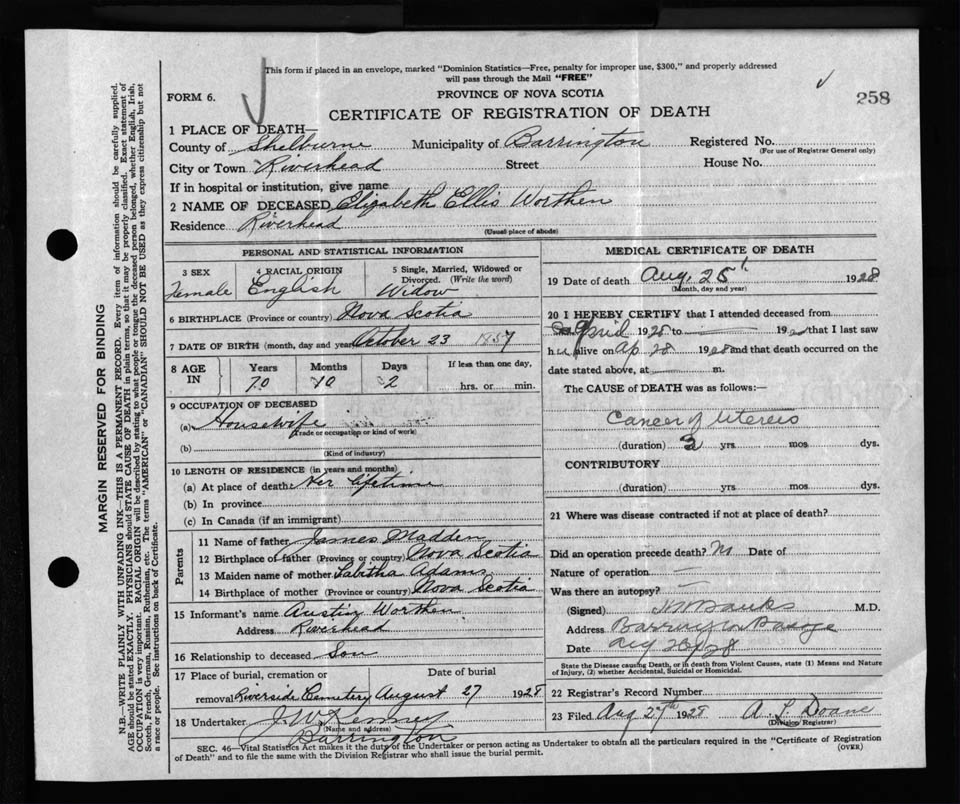 This form if placed in an envelope, marked "Dominion Statistics—Free, penalty for improper use, $300," and properly addressed
will pass through the Mail "FREE"
FORM 6.
PROVINCE OF NOVA SCOTIA
258
CERTIFICATE OF REGISTRATION OF DEATH
1 PLACE OF DEATH—
County of Shelburne Municipality of Barrington Registered No.
(For use of Registrar General only)
City or Town Riverhead Street House No.
If in hospital or institution, give name
2 NAME OF DECEASED Elizabeth Ellis Worthen
Residence Riverhead
(Usual place of abode)
PERSONAL AND STATISTICAL INFORMATION
3 SEX Female
4 RACIAL ORIGIN English
5 Single, Married, Widowed or Divorced. (Write the word) Widow
6 BIRTHPLACE (Province or country) Nova Scotia
7 DATE OF BIRTH (month, day and year) October 23 1857
8 AGE IN Years 70 Months 10 Days 2 If less than one day, hrs. or min.
9 OCCUPATION OF DECEASED
(a) Housewife
(Trade or occupation or kind of work)
(b)
(Kind of industry)
10 LENGTH OF RESIDENCE (in years and months)
(a) At place of death Her lifetime
(b) In province
(c) In Canada (if an immigrant)
Parents
11 Name of father James Madden
12 Birthplace of father (Province or country) Nova Scotia
13 Maiden name of mother Tabitha Adams
14 Birthplace of mother (Province or country) Nova Scotia
15 Informant's name Austin Worthen
Address Riverhead
16 Relationship to deceased Son
17 Place of burial, cremation or Date of burial
removal Riverside Cemetery August 27 1928
18 Undertaker J. W. Kenney
(Name and address)
Barrington
MEDICAL CERTIFICATE OF DEATH
19 Date of death Aug. 25 1928
(Month, day and year)
20 I HEREBY CERTIFY that I attended deceased from
April 1925 to 19 that I last saw
h alive on Ap 28 1928 and that death occurred on the
date stated above, at m.
The CAUSE of DEATH was as follows:—
Cancer of Uterus
(duration) 3 yrs. mos. dys.
CONTRIBUTORY
(duration) yrs. mos. dys.
21 Where was disease contracted if not at place of death?
Did an operation precede death? No Date of
Nature of operation —
Was there an autopsy? —
(Signed) Banks M.D.
Address Barrington Passage
Date Aug 28
State the Disease causing Death, or in death from Violent Causes, state (1) Means and Nature
of Injury, (2) whether Accidental, Suicidal or Homicidal.
22 Registrar's Record Number
23 Filed Aug 27th 1928 A. L. Doane
(Division Registrar)
SEC. 46—Vital Statistics Act makes it the duty of the Undertaker or person acting as Undertaker to obtain all the particulars required in the "Certificate of Registration
of Death" and to file the same with the Division Registrar who shall issue the burial permit.
(OVER)
MARGIN RESERVED FOR BINDING
N.B.—WRITE PLAINLY WITH UNFADING INK—THIS IS A PERMANENT RECORD. Every item of information should be carefully supplied.
AGE should be stated EXACTLY. PHYSICIANS should STATE CAUSE OF DEATH in plain terms, so that it may be properly classified. Exact statement of
OCCUPATION is very important. RACIAL ORIGIN will be described by stating to what people or tongue the deceased person belonged, whether English, Irish,
Scotch, French, German, Russian, Ruthenian, etc. The terms "AMERICAN" or "CANADIAN" SHOULD NOT BE USED as they express citizenship but not
a race or people. See instructions on back of Certificate.